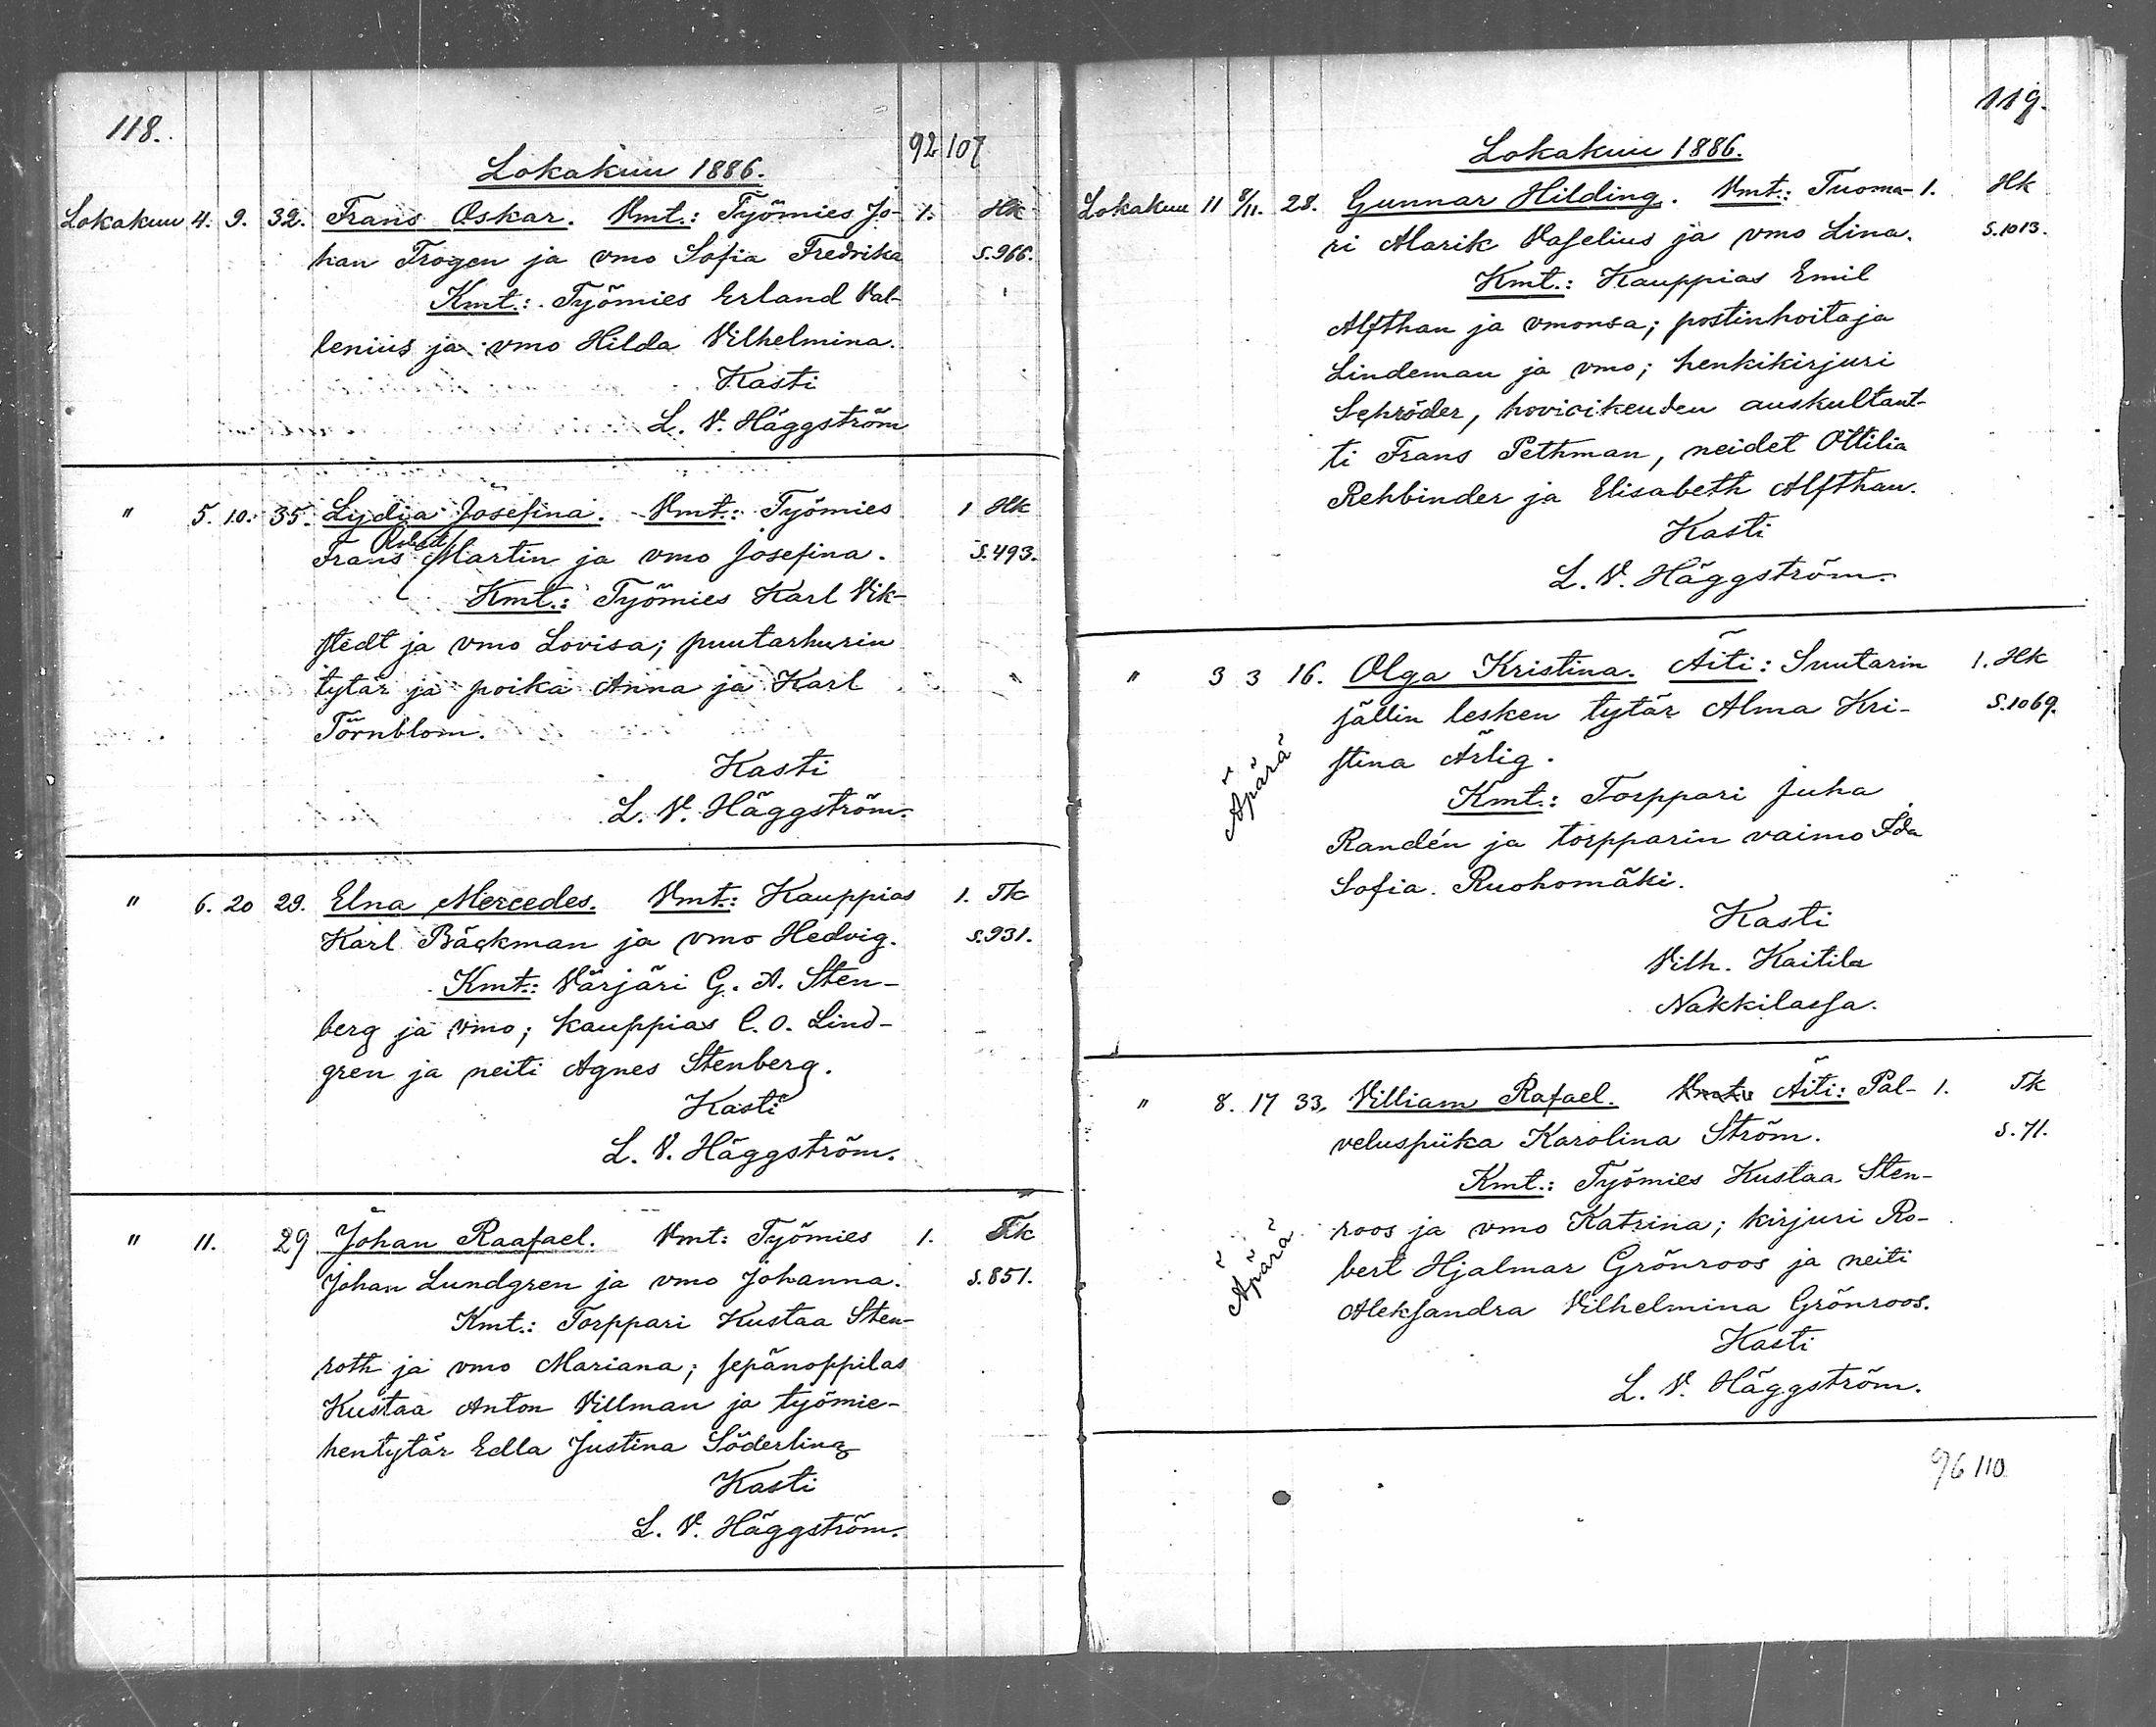 118.
92 107
Lokakuu 1886.
Lokakuu 4. 9. 32. Frans Oskar. Vmt.: Työmies Jo- 1. Hk
han Trogen ja vmo Sofia Fredrika S. 966.
Kmt.: Työmies Erland Val-
lenius ja vmo Hilda Vilhelmina.
Kasti
L. V. Häggström
" 5. 10. 35. Lydia Josefina. Vmt.: Työmies 1 Hk
Frans Martin ja vmo Josefina. S. 493.
Kmt.: Työmies Karl Vik-
stedt ja vmo Lovisa; puutarhurin
tytär ja poika Anna ja Karl
Törnblom.
Kasti
L. V. Häggström.
" 6. 20 29. Elna Mercedes. Vmt.: Kauppias 1. Tk
Karl Bäckman ja vmo Hedvig. S. 931.
Kmt.: Värjäri G. A. Sten-
berg ja vmo; kauppias C. O. Lind-
gren ja neiti Agnes Stenberg.
Kasti
L. V. Häggström.
" 11. 29 Johan Raafael. Vmt: Työmies 1. Tk
Johan Lundgren ja vmo Johanna. S. 851.
Kmt.: Torppari Kustaa Sten-
roth ja vmo Mariana; sepänoppilas
Kustaa Anton Villman ja työmie-
hentytär Edla Justina Söderling
Kasti
L. V. Häggström.
119.
Lokakuu 1886.
Lokakuu 11 8/11. 28. Gunnar Hilding. Vmt.: Tuoma- 1. Hk
ri Alarik Vaselius ja vmo Lina. S. 1013.
Kmt.: Kauppias Emil
Alfthan ja vmonsa; postinhoitaja
Lindeman ja vmo; henkikirjuri
Schröder, hovioikeuden auskultant-
ti Frans Pethman, neidet Ottilia
Rehbinder ja Elisabeth Alfthan.
Kasti
L. V. Häggström.
" 3 3 16. Olga Kristina. Äiti: Suutarin 1. Hk
sällin lesken tytär Alma Kri- S. 1069.
stina Ärlig.
Äpärä
Kmt.: Torppari Juha
Randén ja torpparin vaimo Ida
Sofia Ruohomäki.
Kasti
Vilh. Kaitila
Nakkilassa.
" 8. 17 33. Villiam Rafael. Vmt.: Äiti: Pal- 1. Tk
veluspiika Karolina Ström. S. 71.
Kmt.: Työmies Kustaa Sten-
Äpärä
roos ja vmo Katrina; kirjuri Ro-
bert Hjalmar Grönroos ja neiti
Aleksandra Vilhelmina Grönroos.
Kasti
L. V. Häggström.
96 110